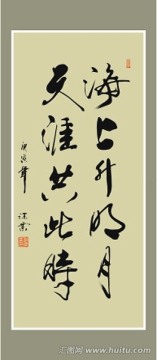 海上升明月
天涯共此時
庚寅年
汇图网
www.huitu.com